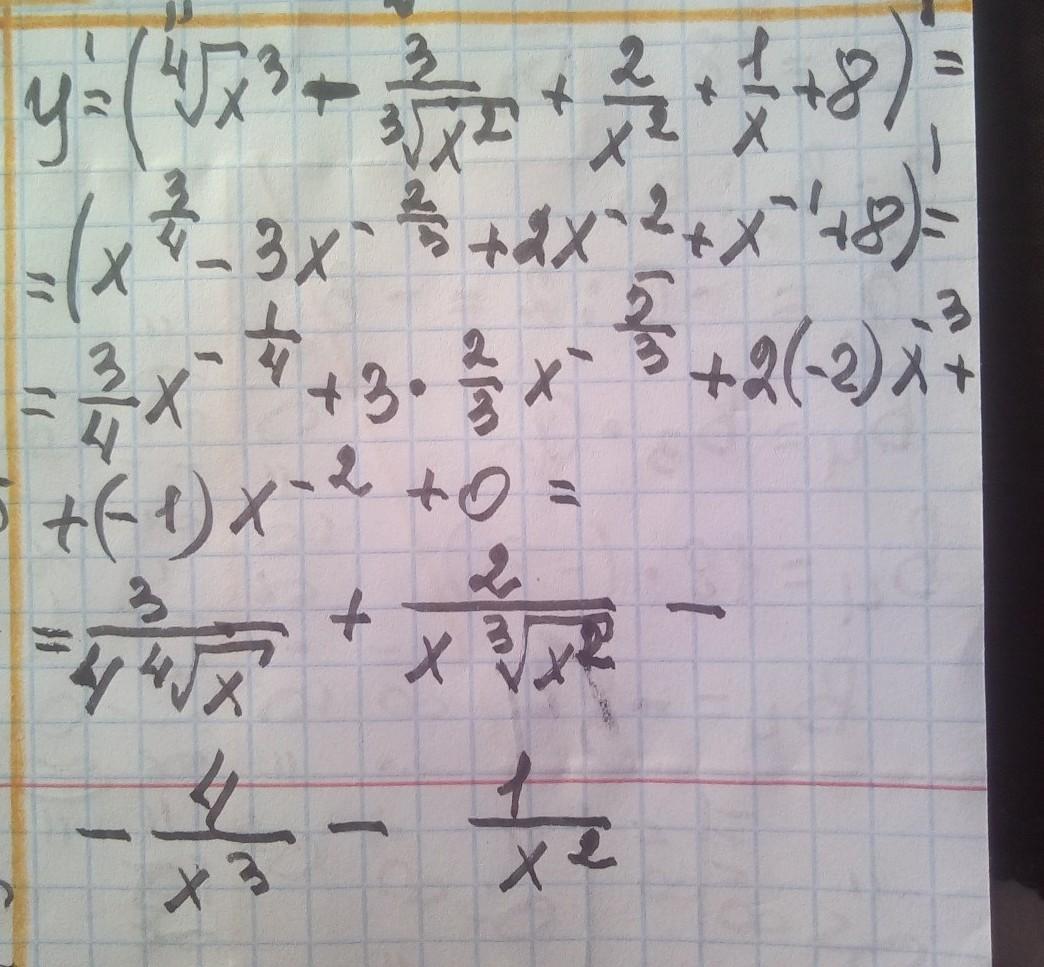 y' = (⁴√x³ - 3/³√x² + 2/x² + 1/x + 8)' =
= (x^(3/4) - 3x^(-2/3) + 2x^(-2) + x^(-1) + 8)' =
= 3/4 x^(-1/4) + 3 · 2/3 x^(-5/3) + 2(-2)x^(-3) +
+ (-1)x^(-2) + 0 =
= 3/(4 ⁴√x) + 2/(x ³√x²) -
- 4/x³ - 1/x²